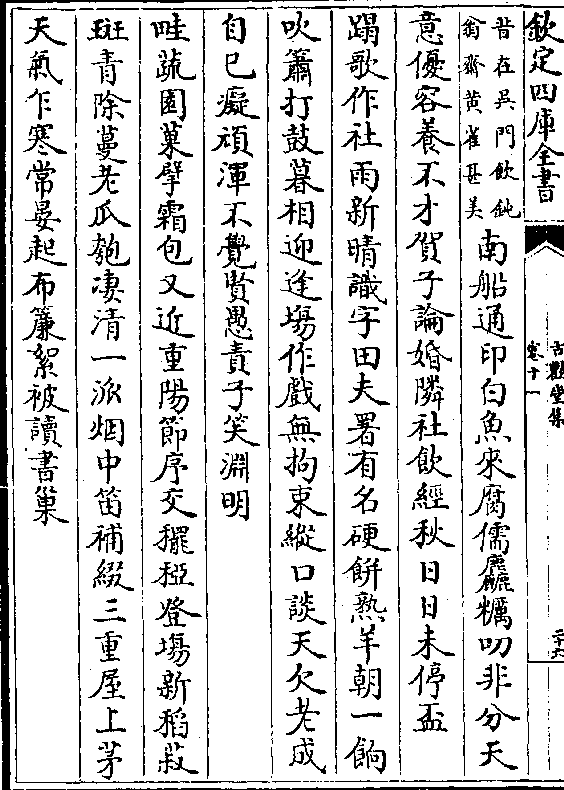 欽定四庫全書
古歡堂集
卷十一
二十六
昔在吳門飲鈍
翁齋黄雀甚美
南船通印白魚來腐儒麤糲叨非分天
意優容養不才賀子論婚隣社飲經秋日日未停盃
蹋歌作社雨新晴識字田夫署有名硬餅熟羊朝一餉
吹簫打鼓暮相迎逢塲作戲無拘束縱口談天欠老成
自已癡頑渾不覺賢愚責子笑淵明
畦蔬園菓擘霜包又近重陽節序交䆉稏登塲新稻菽
斑青除蔓老瓜匏凄清一派烟中笛補綴三重屋上茅
天氣乍寒常晏起布簾絮被讀書巢